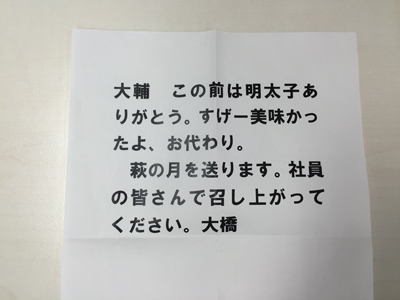 大輔　この前は明太子あ
りがとう。すげー美味かっ
たよ、お代わり。
　萩の月を送ります。社員
の皆さんで召し上がって
ください。大橋